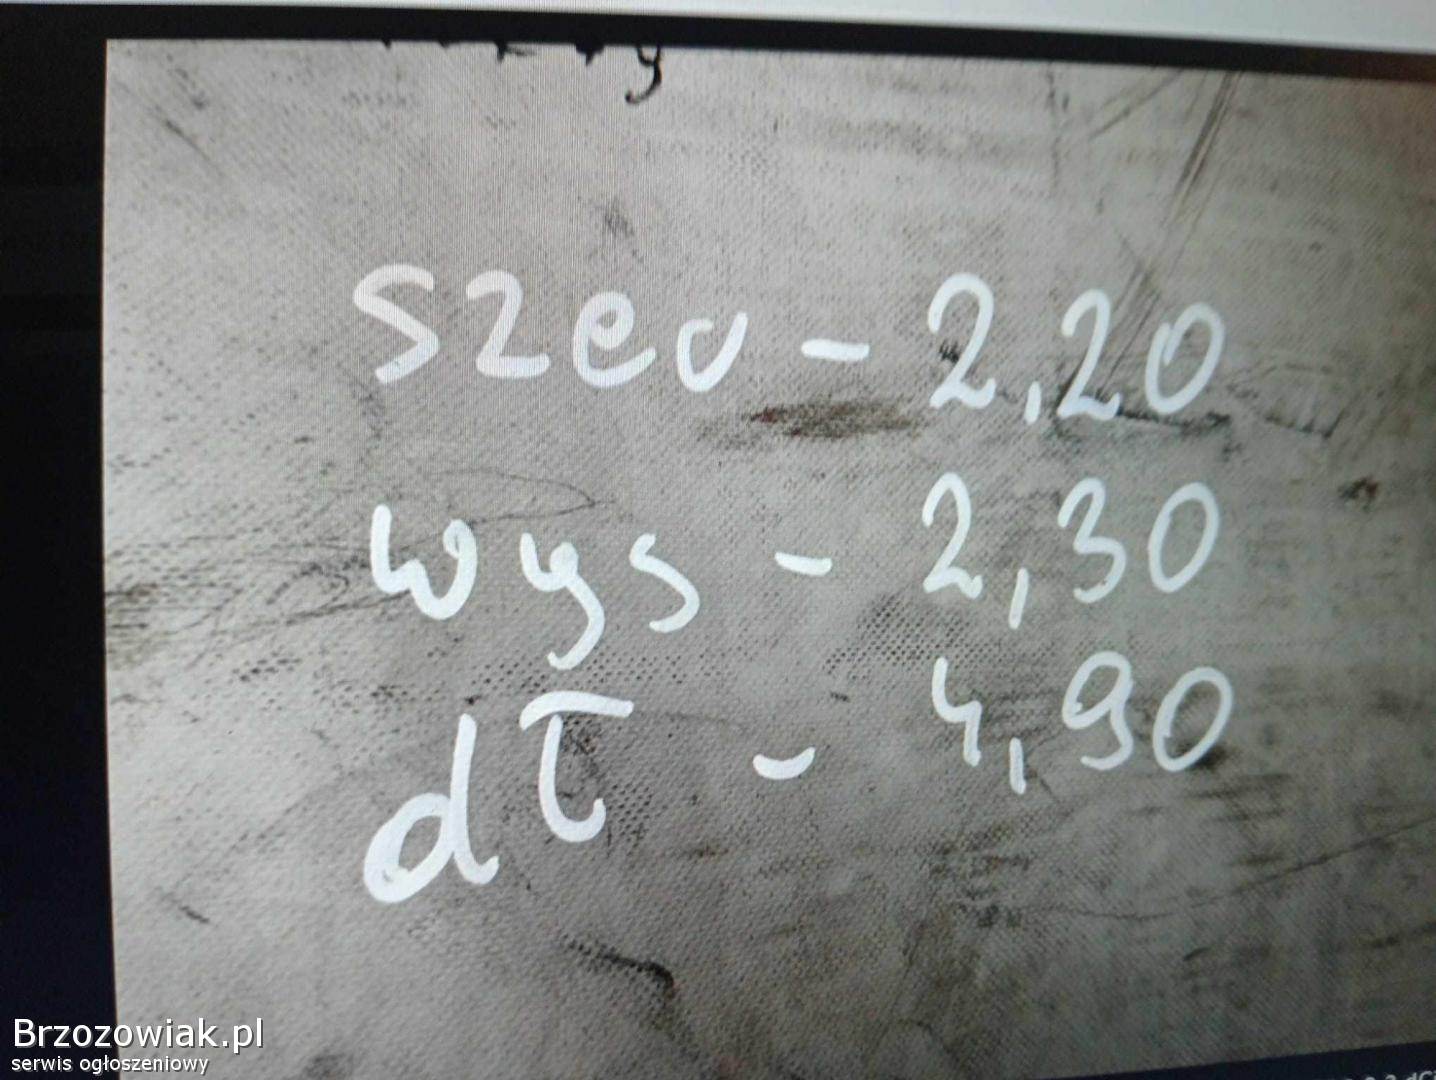 szer - 2,20
wys - 2,30
dł - 4,90
Brzozowiak.pl
serwis ogłoszeniowy